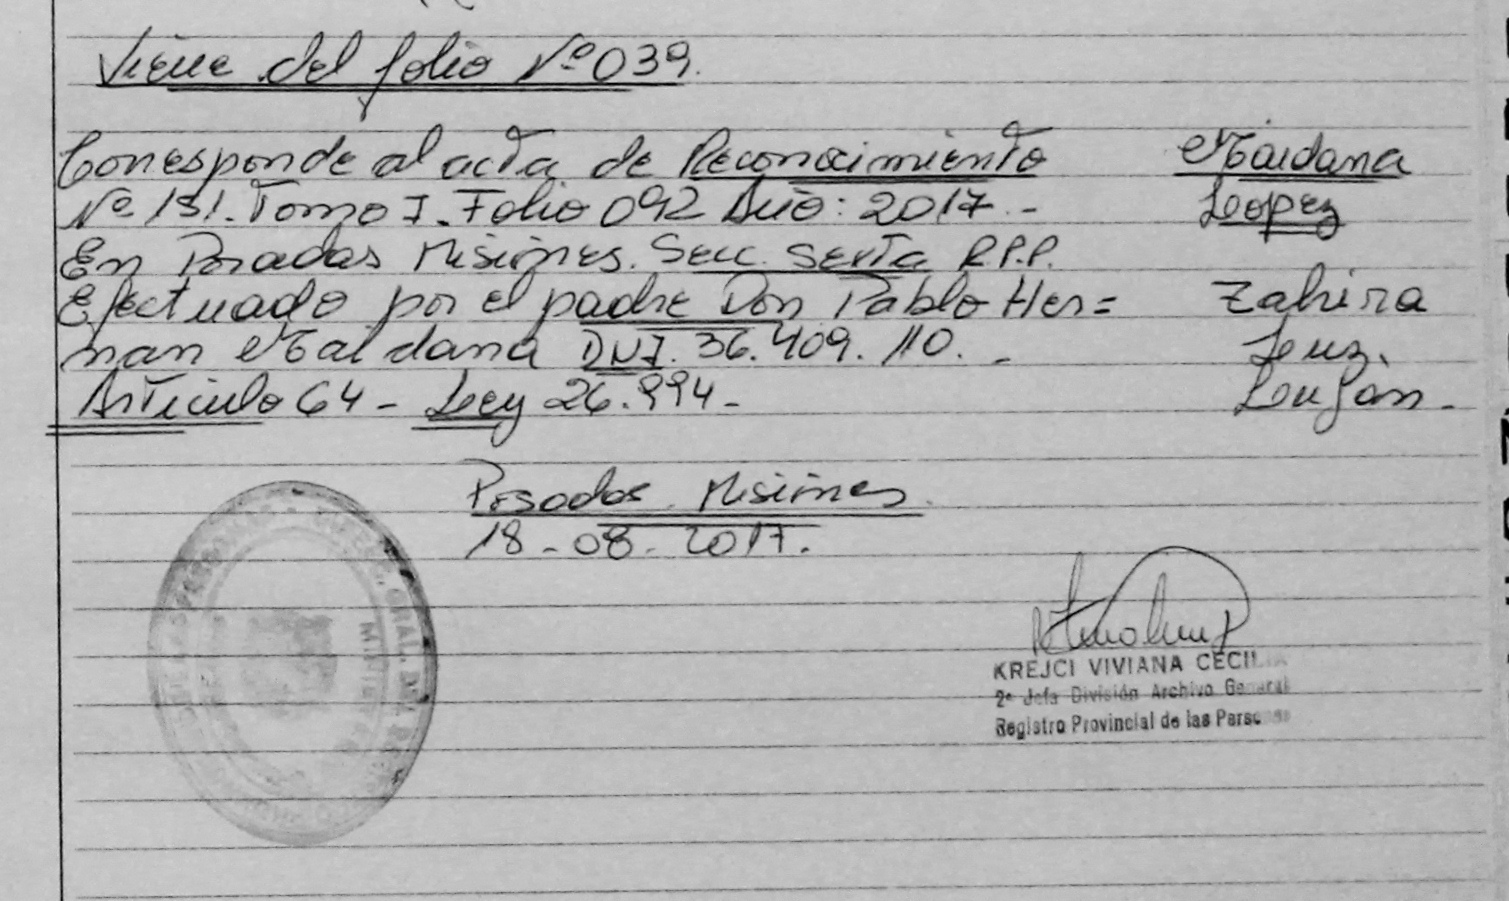 Viene del folio Nº 039.
Corresponde al acta de Reconocimiento
Nº 131. Tomo I. Folio 092 Año: 2017.-
En Posadas Misiones. Secc. Sexta R.P.P.
Efectuado por el padre Don Pablo Her=
nan Maidana DNI. 36.409.110.-
Articulo 64 - Ley 26.994-
Maidana
Lopez
Zahira
Luz.
Luján.
Posadas. Misiones.
18-08-2017.
KREJCI VIVIANA CECIL
2ª Jefa División Archivo General
Registro Provincial de las Personas